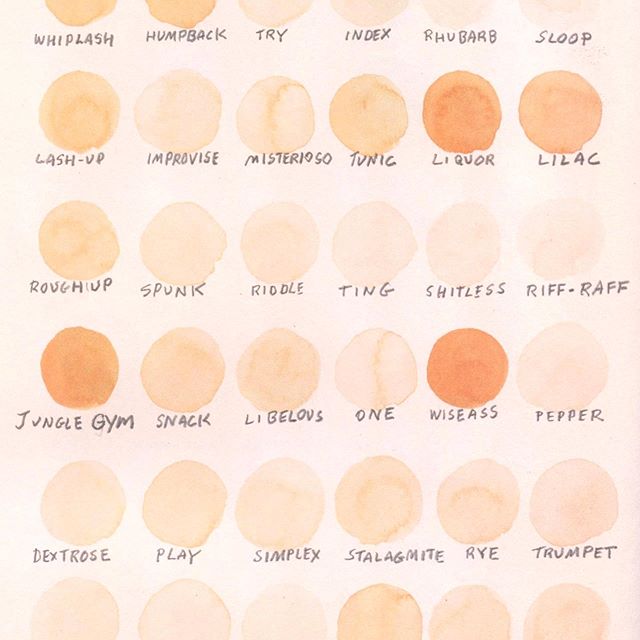 WHIPLASH HUMPBACK TRY INDEX RHUBARB SLOOP
LASH-UP IMPROVISE MISTERIOSO TUNIC LIQUOR LILAC
ROUGHIUP SPUNK RIDDLE TING SHITLESS RIFF-RAFF
JUNGLE GYM SNACK LIBELOUS ONE WISEASS PEPPER
DEXTROSE PLAY SIMPLEX STALAGMITE RYE TRUMPET